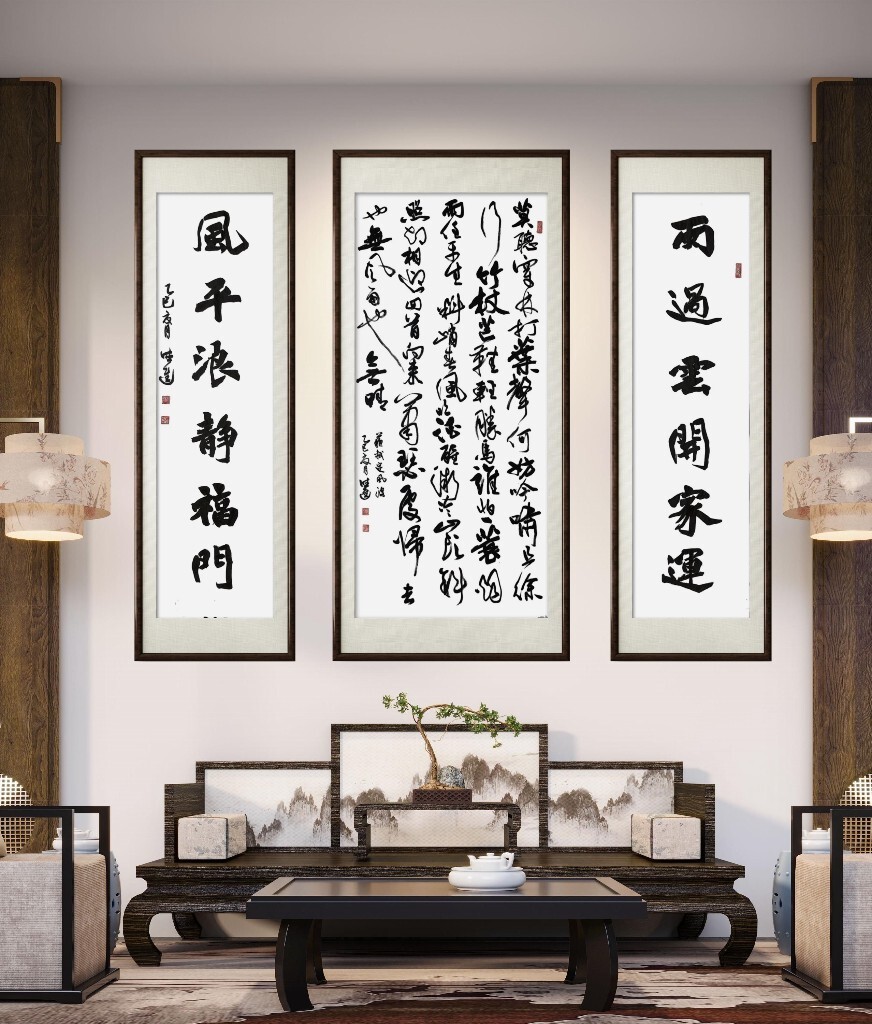 雨過雲開家運
莫聽穿林打葉聲何妨吟嘯且徐
行竹杖芒鞋輕勝馬誰怕一蓑煙
雨任平生料峭春風吹酒醒微冷山頭斜
照却相迎回首向來蕭瑟處歸去
也無風雨也無晴
蘇軾定風波
乙巳夏月
風平浪靜福門
乙巳夏月